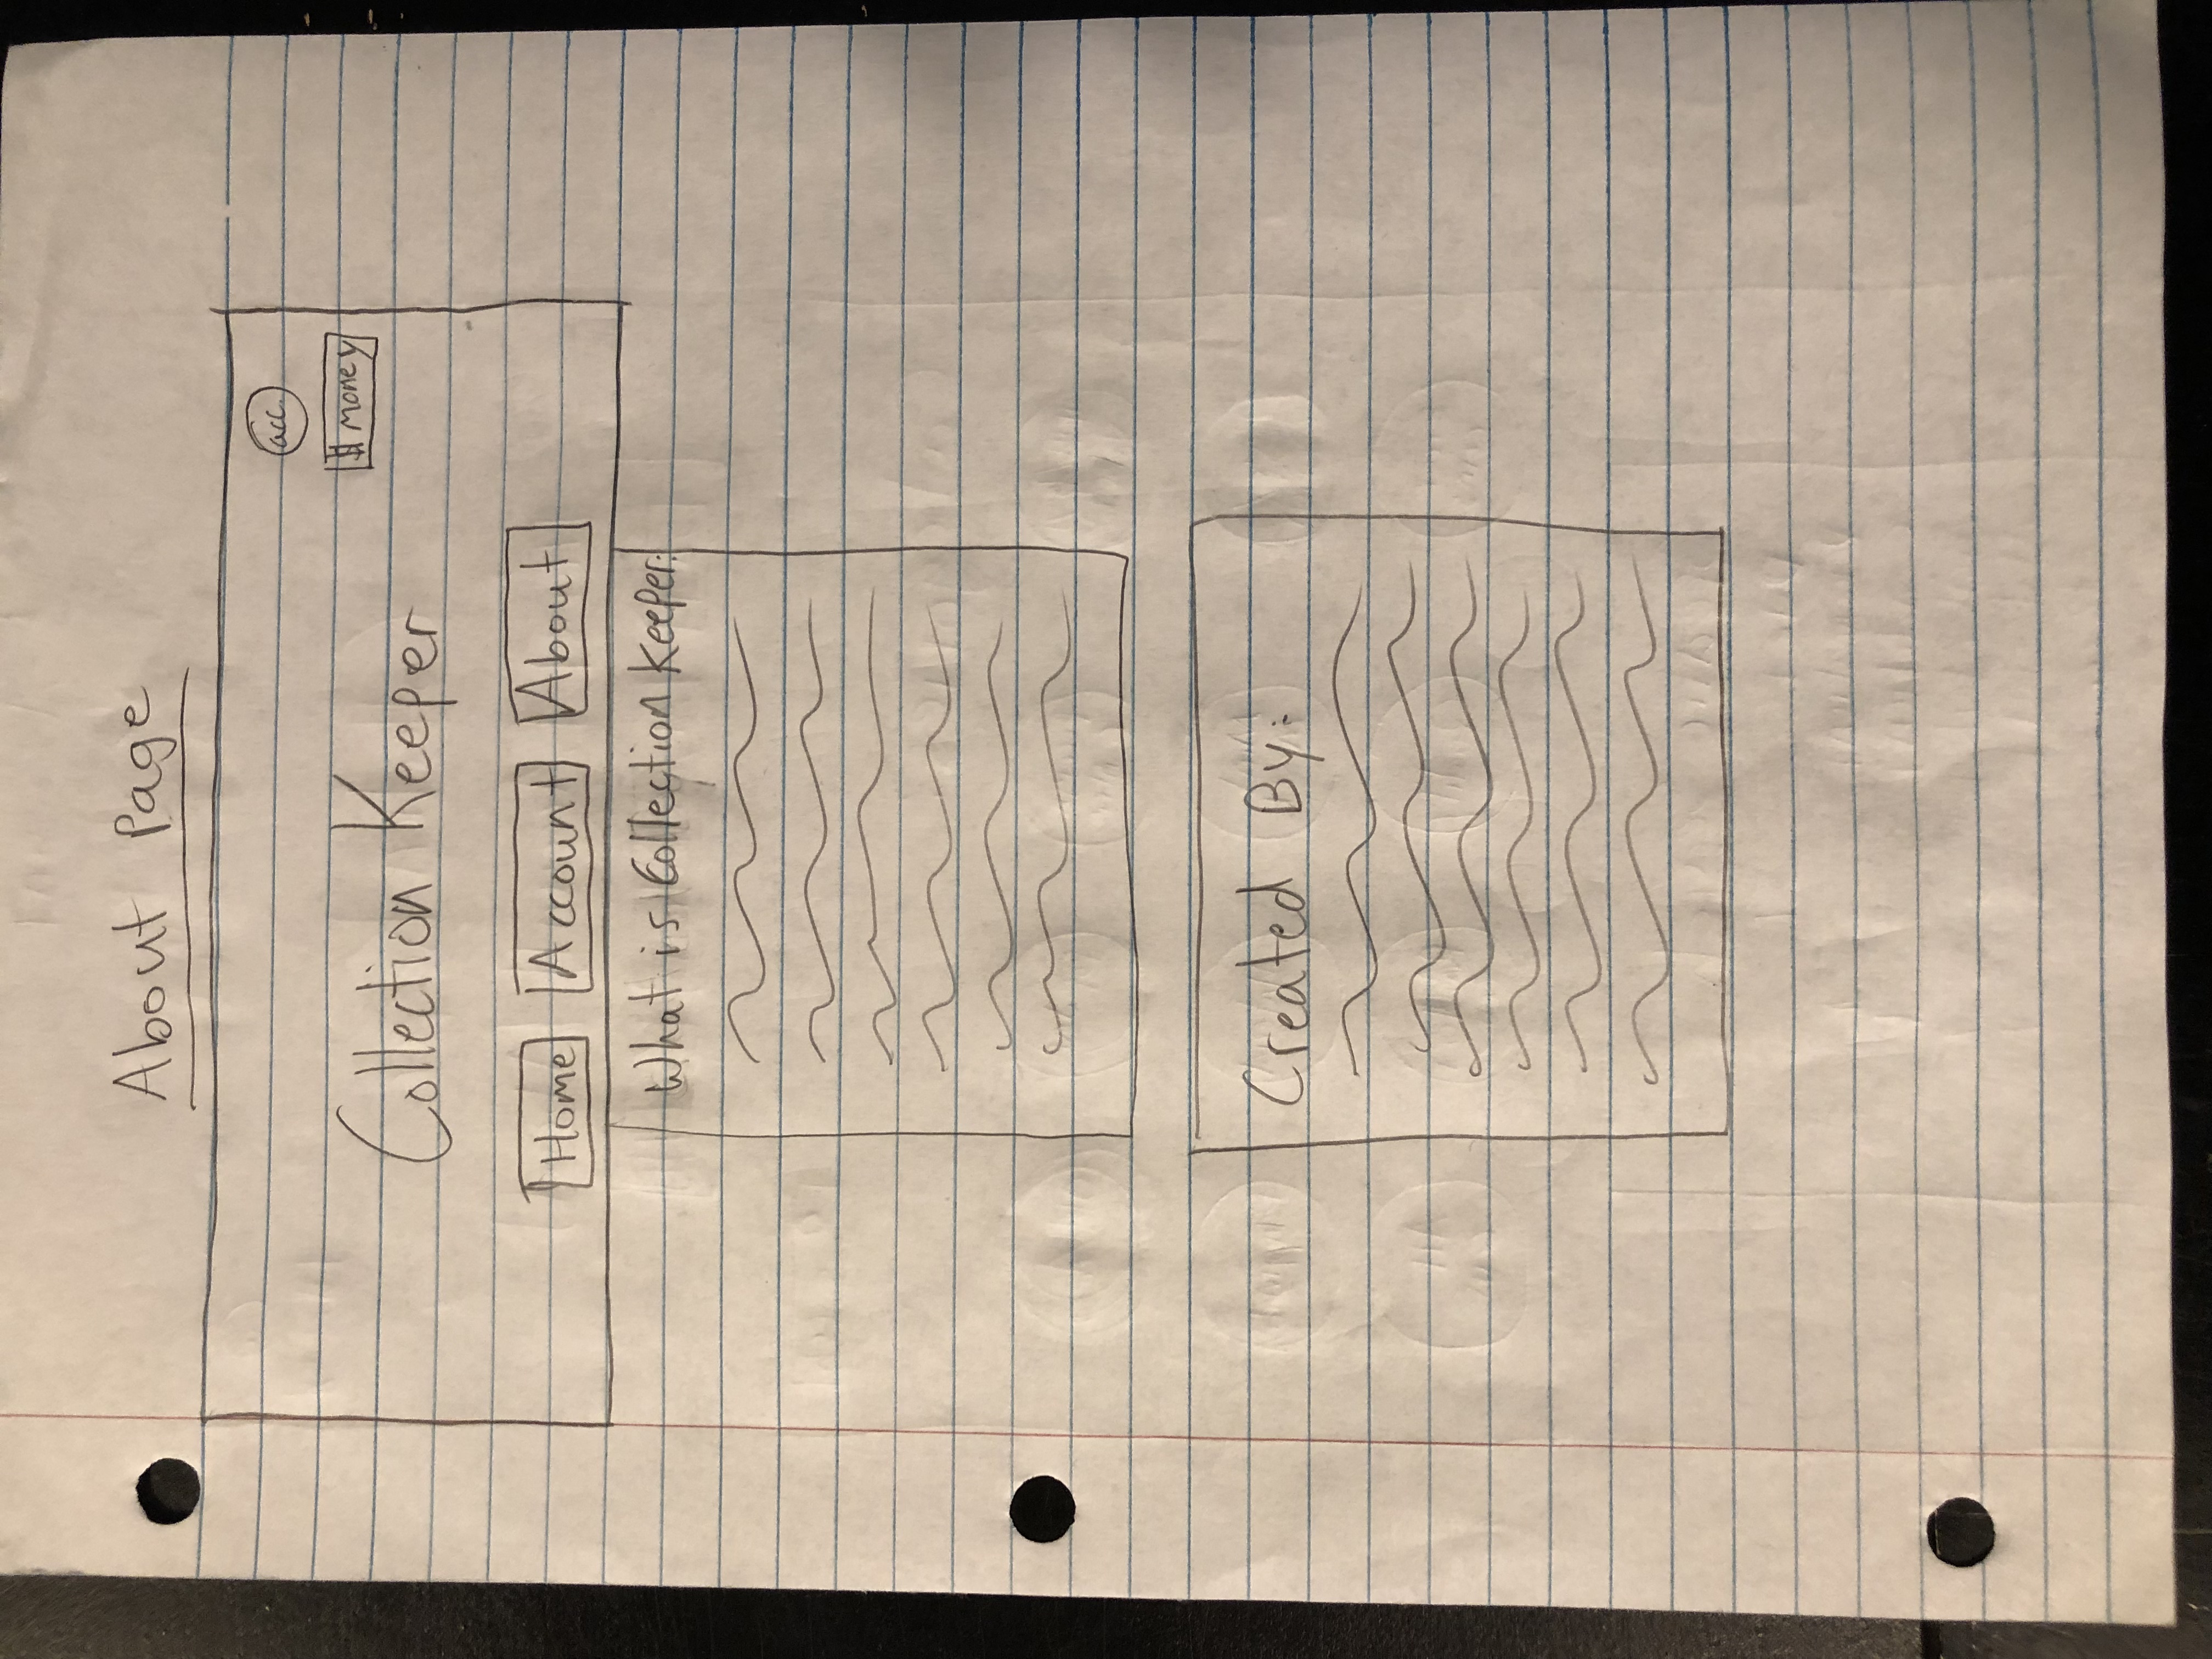 About Page
acc.
$ money
Collection Keeper
Home Account About
What is Collection Keeper:
Created By: